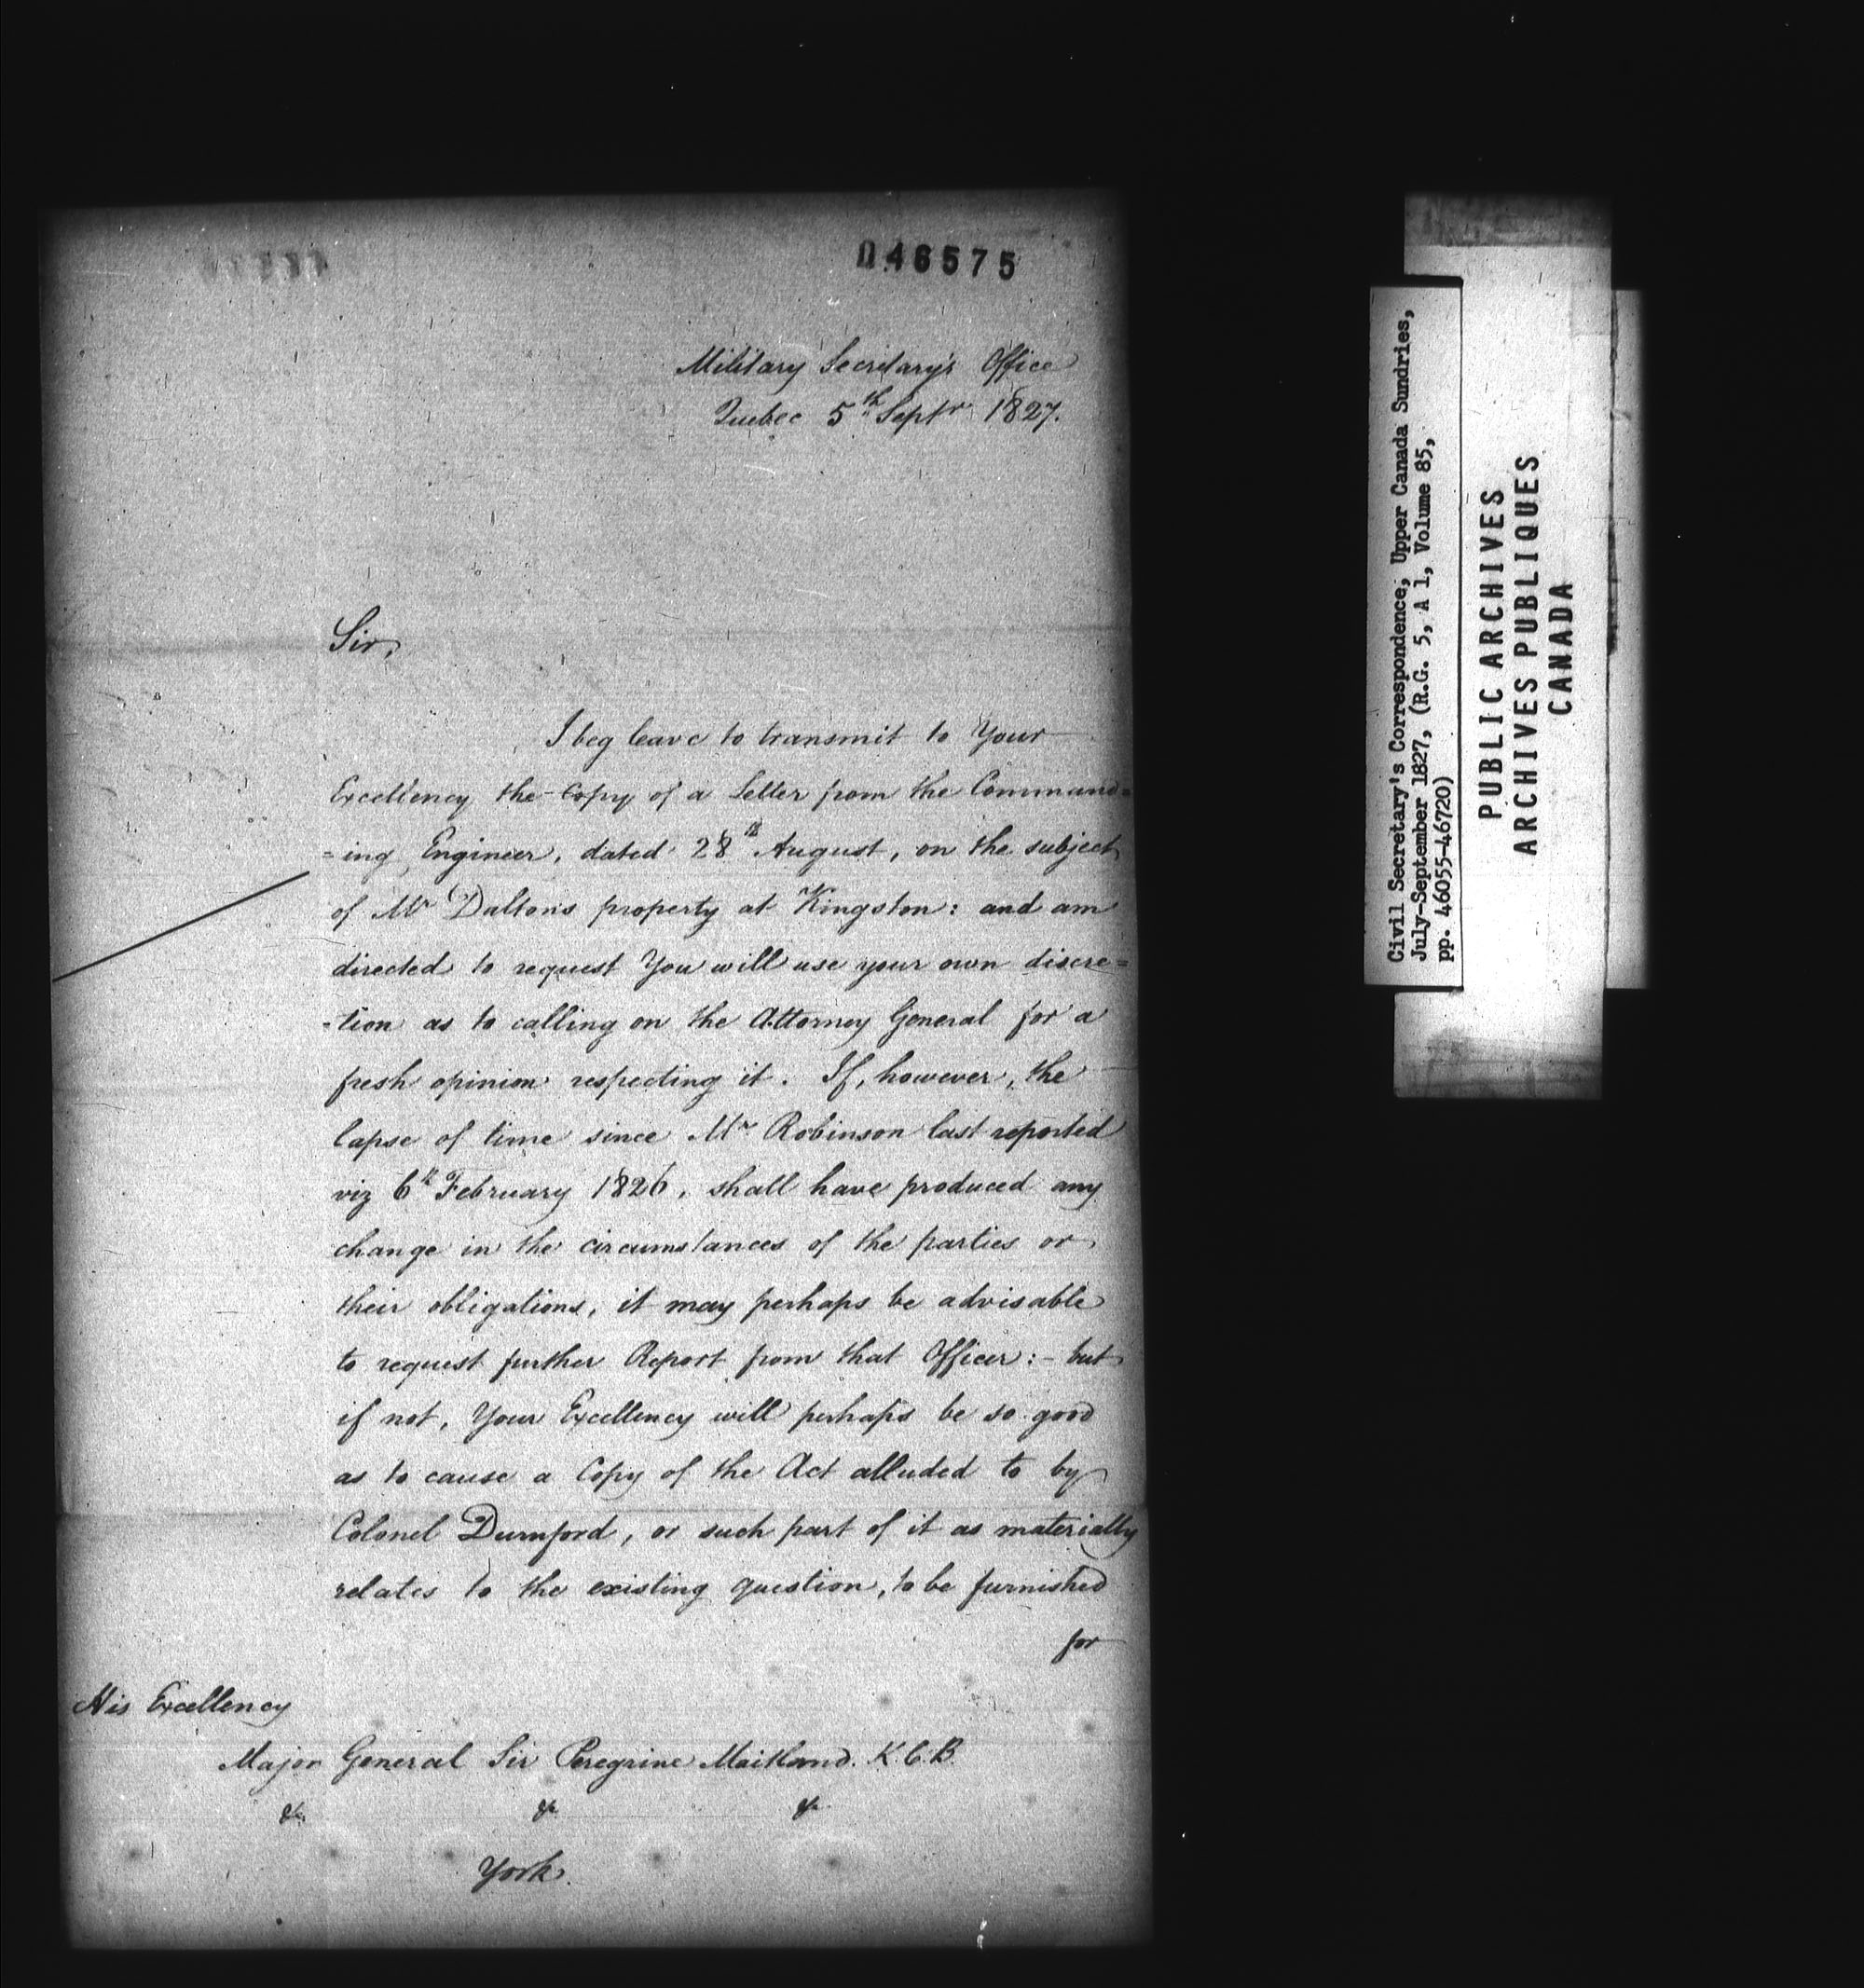 046575
Military Secretary's Office
Quebec 5th Septr 1827.
Sir,
I beg leave to transmit to Your
Excellency the Copy of a Letter from the Command=
=ing Engineer, dated 28th August, on the subject
of Mr Dalton's property at Kingston: and am
directed to request You will use your own discre=
=tion as to calling on the Attorney General for a
fresh opinion respecting it. If, however, the
lapse of time since Mr Robinson last reported
viz 6th February 1826, shall have produced any
change in the circumstances of the parties or
their obligations, it may perhaps be advisable
to request further Report from that Officer:- but
if not, Your Excellency will perhaps be so good
as to cause a Copy of the Act alluded to by
Colonel Durnford, or such part of it as materially
relates to the existing question, to be furnished
for
His Excellency
Major General Sir Peregrine Maitland. K.C.B.
&c &c &c
York.
Civil Secretary's Correspondence, Upper Canada Sundries,
July-September 1827, (R.G. 5, A 1, Volume 85,
pp. 46055-46720)
PUBLIC ARCHIVES
ARCHIVES PUBLIQUES
CANADA